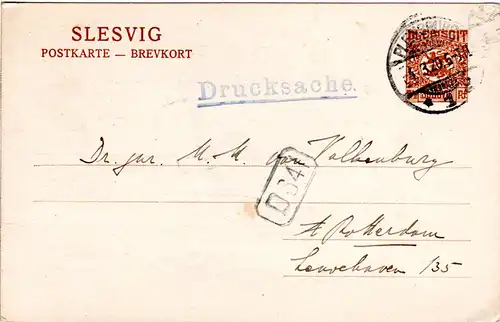 SLESVIG
POSTKARTE — BREVKORT
PLEBISCIT
Drucksache.
Dr. jur. M. M. van Valkenburg
D34
Rotterdam
Leuvehaven 135